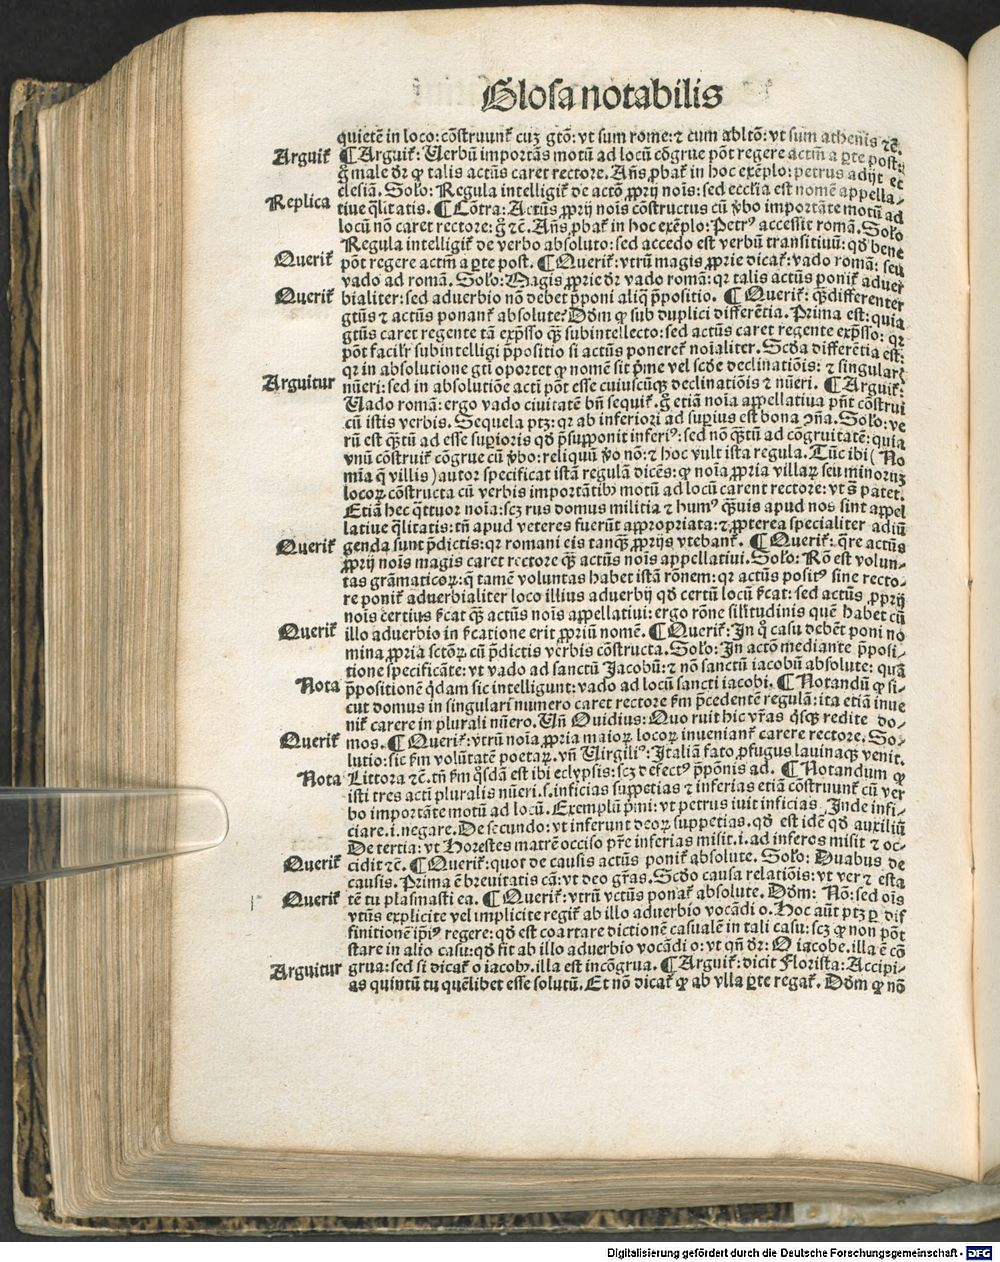 Glosa notabilis
quietē in loco: cōstruunt᷑ cuʒ gtō: vt sum rome: ⁊ cum abltō: vt sum athenis ⁊c̄.
Arguit᷑ ¶ Arguit᷑: Uerbū importās motū ad locū cōgrue pōt regere actm̄ a ꝑte post:
gͦ male dr̄ ꝙ talis actūs caret rectore. Añs ꝓbat᷑ in hoc exēplo: petrus adijt ec
clesiā. Solͦo: Regula intelligit᷑ de actō ꝓprij nois̄: sed eccl̄ia est nomē appella-
Replica tiue q̄litatis. ¶ Cōtra: Actūs ꝓprij nois̄ cōstructus cū v̄bo importāte motū ad
locū nō caret rectore: gͦ ⁊c̄. Añs ꝓbat᷑ in hoc exēplo: Petrꝰ accessit romā. Solͦo
Regula intelligit᷑ de verbo absoluto: sed accedo est verbū transitiuū: qd̄ bene
Querit᷑ pōt regere actm̄ a ꝑte post. ¶ Querit᷑: vtrū magis ꝓprie dicat᷑: vado romā: seu
vado ad romā. Solͦo: Magis ꝓprie dr̄ vado romā: qr talis actūs ponit᷑ aduer
Querit᷑ bialiter: sed aduerbio nō debet p̄poni aliq̄ p̄positio. ¶ Querit᷑: q̄ꝫ differenter
gtūs ⁊ actūs ponant᷑ absolute? Dd̄m ꝙ sub duplici differētia. Prima est: quia
gtūs caret regente tā exp̄sso q̄ꝫ subintellecto: sed actūs caret regente exp̄sso: qr
pōt facilr̄ subintelligi p̄positio si actūs poneret᷑ noīaliter. Scd̄a differētia est:
qr in absolutione gti oportet ꝙ nomē sit p̄me vel scd̄e declinatiōis: ⁊ singulari
Arguitur nūeri: sed in absolutiōe acti pōt esse cuiuscūqꝫ declinatiōis ⁊ nūeri. ¶ Arguit᷑:
Uado romā: ergo vado ciuitatē bn̄ sequit᷑. gͦ etiā noīa appellatiua pn̄t cōstrui
cū istis verbis. Sequela ptꝫ: qr ab inferiori ad suꝑius est bona ꝯñа. Solͦo: ve
rū est q̄ꝫtū ad esse suꝑioris qd̄ p̄supponit inferiꝰ: sed nō q̄ꝫtū ad cōgruitatē: quia
vnū cōstruit᷑ cōgrue cū v̄bo: reliquū v̄o nō: ⁊ hoc vult ista regula. Tūc ibi (No
mīa q̄ villis) autor specificat istā regulā dicēs: ꝙ noīa ꝓpria villaꝝ seu minoruꝫ
locoꝝ cōstructa cū verbis importātibꝰ motū ad locū carent rectore: vt s̄ patet.
Etiā hec q̄ttuor noīa: scꝫ rus domus militia ⁊ humꝰ q̄ꝫuis apud nos sint appel
latiue q̄litatis: tn̄ apud veteres fuerūt appropriata: ⁊ ꝓpterea specialiter adiū
Querit᷑ genda sunt p̄dictis: qr romani eis tanq̄ꝫ ꝓprijs vtebant᷑. ¶ Querit᷑: q̄re actūs
ꝓprij nois̄ magis caret rectore q̄ꝫ actūs nois̄ appellatiui. Solͦo: Rō est volun-
tas grāmaticoꝝ: q̄ tamē voluntas habet istā rōnem: qr actūs positꝰ sine recto-
re ponit᷑ aduerbialiter loco illius aduerbij qd̄ certū locū sc̄at: sed actūs ꝓprij
nois̄ certius sc̄at q̄ꝫ actūs nois̄ appellatiui: ergo rōne silitudinis quē habet cū
Querit᷑ illo aduerbio in sc̄atione erit ꝓpriū nomē. ¶ Querit᷑: In q̊ casu debēt poni no
mina ꝓpria sctōꝝ cū p̄dictis verbis cōstructa. Solͦo: In actō mediante p̄posi-
tione specificāte: vt vado ad sanctū Jacobū: ⁊ nō sanctū iacobū absolute: quā
Nota p̄positionē q̇dam sic intelligunt: vado ad locū sancti iacobi. ¶ Notandū ꝙ si-
cut domus in singulari numero caret rectore sm̄ p̄cedentē regulā: ita etiā inue
nit᷑ carere in plurali nūero. Un̄ Ouidius: Quo ruit hic vr̄as q̇sqꝫ redite do-
Querit᷑ mos. ¶ Querit᷑: vtrū noīa ꝓpria maioꝝ locoꝝ inueniant᷑ carere rectore. So-
lutio: sic sm̄ volūtatē poetaꝝ. vn̄ Uirgiliꝰ: Italiā fato ꝓfugus lauinaqꝫ venit.
Nota Littora ⁊c̄. tn̄ sm̄ q̇sdā est ibi eclypsis: scꝫ defectꝰ p̄pōnis ad. ¶ Notandum ꝙ
isti tres acti pluralis nūeri .s. inficias suppetias ⁊ inferias etiā cōstruunt᷑ cū ver
bo importāte motū ad locū. Exemplū p̄mi: vt petrus iuit inficias. Inde infi-
ciare .i. negare. De secundo: vt inferunt deoꝝ suppetias. qd̄ est idē qd̄ auxiliū
De tertia: vt Horestes matrē occiso pr̄e inferias misit .i. ad inferos misit ⁊ oc-
Querit᷑ cidit ⁊c̄. ¶ Querit᷑: quot de causis actūs ponit᷑ absolute. Solͦo: Duabus de
causis. Prima ē breuitatis cā: vt deo gr̄as. Scd̄o causa relatiōis: vt ver ⁊ esta
Querit᷑ tē tu plasmasti ea. ¶ Querit᷑: vtrū vctūs ponat᷑ absolute. Dd̄m: Nō: sed oīs
vtūs explicite vel implicite regit᷑ ab illo aduerbio vocādi o. Hoc aūt ptꝫ ꝑ dif
finitionē ip̄iꝰ regere: qd̄ est coartare dictionē casualē in tali casu: scꝫ ꝙ non pōt
stare in alio casu: qd̄ fit ab illo aduerbio vocādi o: vt qn̄ dr̄: O iacobe. illa ē cō
Arguitur grua: sed si dicat᷑ o iacobꝰ. illa est incōgrua. ¶ Arguit᷑: dicit Florista: Accipi-
as quintū tu quēlibet esse solutū. Et nō dicat᷑ ꝙ ab vlla ꝑte regat᷑. Dd̄m ꝙ nō
Digitalisierung gefördert durch die Deutsche Forschungsgemeinschaft - DFG